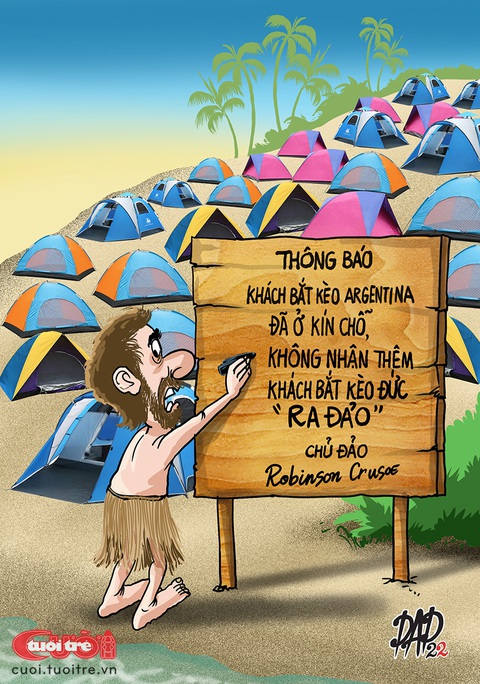 THÔNG BÁO
KHÁCH BẮT KÈO ARGENTINA
ĐÃ Ở KÍN CHỖ,
KHÔNG NHẬN THÊM
KHÁCH BẮT KÈO ĐỨC
"RA ĐẢO"
CHỦ ĐẢO
Robinson Crusoe
DAD
22
tuổi trẻ
CƯỜI
cuoi.tuoitre.vn